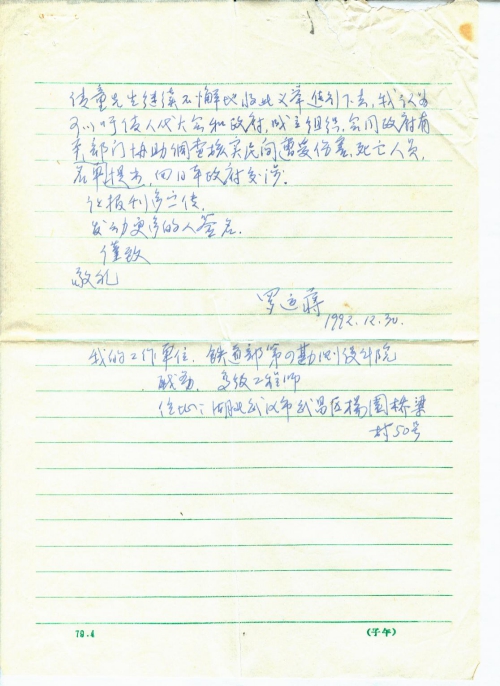 使童先生继续不懈地将此义举进行下去，我认为
可以呼使人代大会和政府，成立组织，会同政府有
关部门协助调查核实民间遭受伤害，死亡人员，
名单提出，向日本政府交涉。
让报刊多宣传，
发动更多的人签名。
谨致
敬礼
罗运
1992.12.30.
我的工作单位：铁道部第四勘测设计院
职务：高级工程师
住址：湖北武汉市武昌区杨园桥梁
村50号
79.4
(子午)